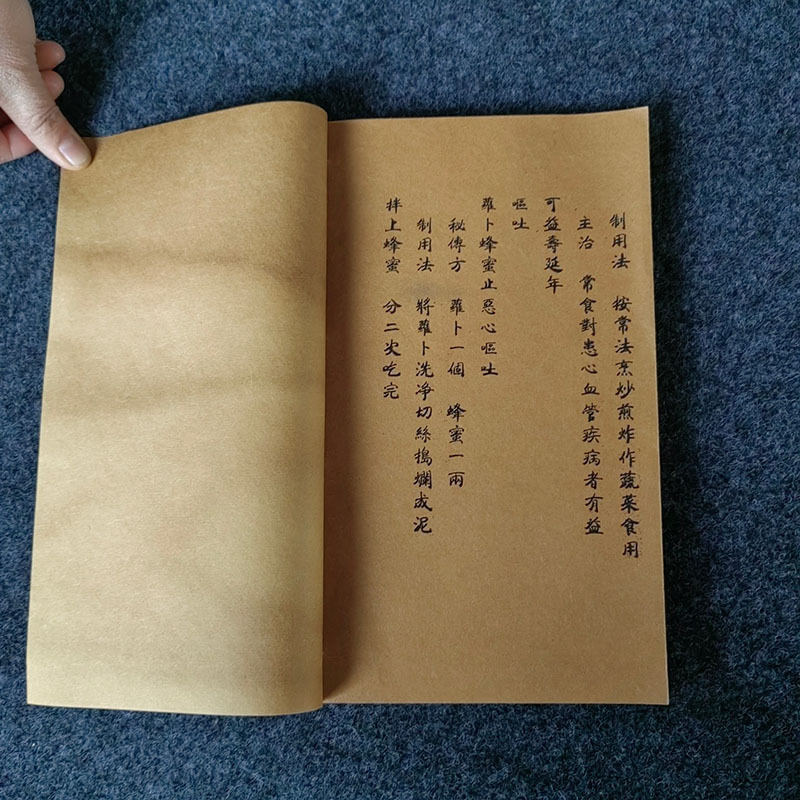 制用法 按常法烹炒煎炸作蔬菜食用
主治 常食對患心血管疾病者有益
可益壽延年
嘔吐
蘿卜蜂蜜止惡心嘔吐
秘傳方 蘿卜一個 蜂蜜一兩
制用法 將蘿卜洗净切絲搗爛成泥
拌上蜂蜜 分二次吃完